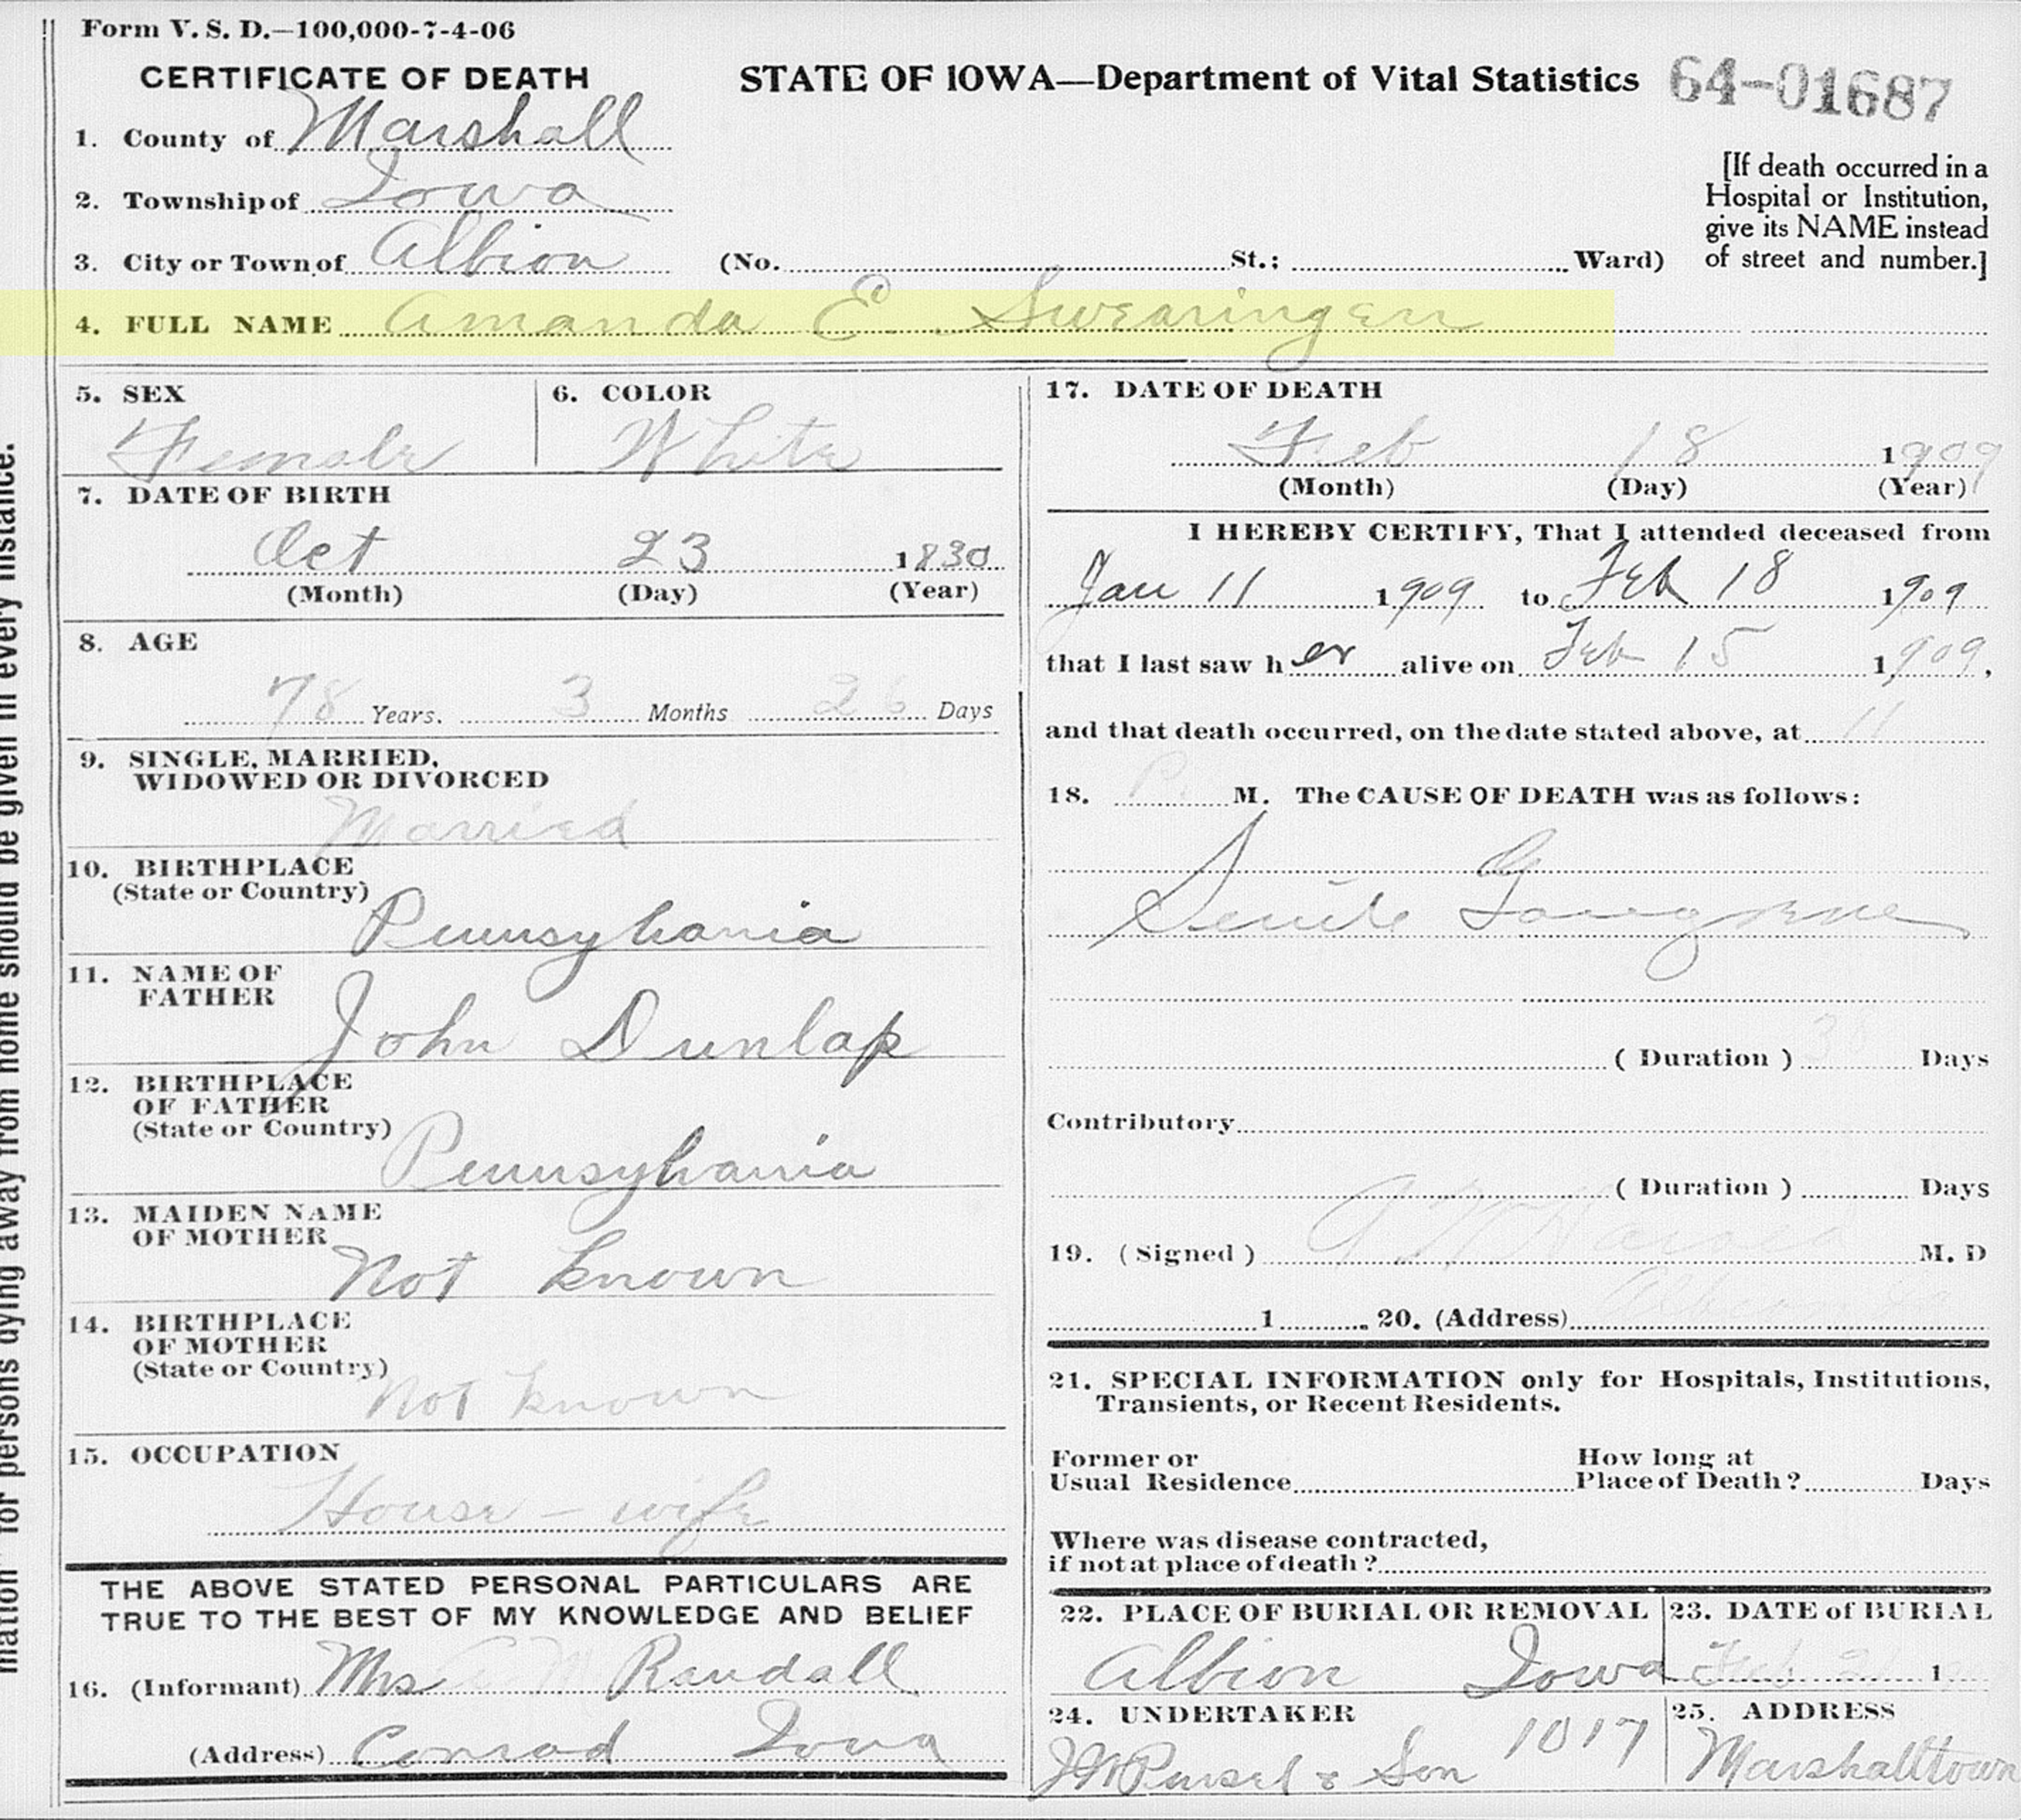 Form V. S. D.—100,000-7-4-06
CERTIFICATE OF DEATH
STATE OF IOWA—Department of Vital Statistics
64-01687
1. County of Marshall
2. Township of Iowa
3. City or Town of Albion (No. St.; Ward)
[If death occurred in a
Hospital or Institution,
give its NAME instead
of street and number.]
4. FULL NAME Amanda E. Swearingen
5. SEX
Female
6. COLOR
White
7. DATE OF BIRTH
Oct 23 1830
(Month) (Day) (Year)
8. AGE
78 Years. 3 Months 26 Days
9. SINGLE, MARRIED,
WIDOWED OR DIVORCED
Married
10. BIRTHPLACE
(State or Country)
Pennsylvania
11. NAME OF
FATHER
John Dunlap
12. BIRTHPLACE
OF FATHER
(State or Country)
Pennsylvania
13. MAIDEN NAME
OF MOTHER
Not known
14. BIRTHPLACE
OF MOTHER
(State or Country)
Not known
15. OCCUPATION
House-wife
THE ABOVE STATED PERSONAL PARTICULARS ARE
TRUE TO THE BEST OF MY KNOWLEDGE AND BELIEF
16. (Informant) Mrs Randall
(Address) Conrad Iowa
17. DATE OF DEATH
Feb 18 1909
(Month) (Day) (Year)
I HEREBY CERTIFY, That I attended deceased from
Jan 11 1909 to Feb 18 1909
that I last saw her alive on Feb 15 1909,
and that death occurred, on the date stated above, at 11
18. P. M. The CAUSE OF DEATH was as follows:
Senile Gangrene
(Duration) 38 Days
Contributory
(Duration) Days
19. (Signed) M. D
1 . 20. (Address) Albion
21. SPECIAL INFORMATION only for Hospitals, Institutions,
Transients, or Recent Residents.
Former or
Usual Residence
How long at
Place of Death? Days
Where was disease contracted,
if not at place of death?
22. PLACE OF BURIAL OR REMOVAL
Albion Iowa
23. DATE of BURIAL
Feb 1
24. UNDERTAKER
& Son 1017
25. ADDRESS
Marshalltown
mation" for persons dying away from home should be given in every instance.